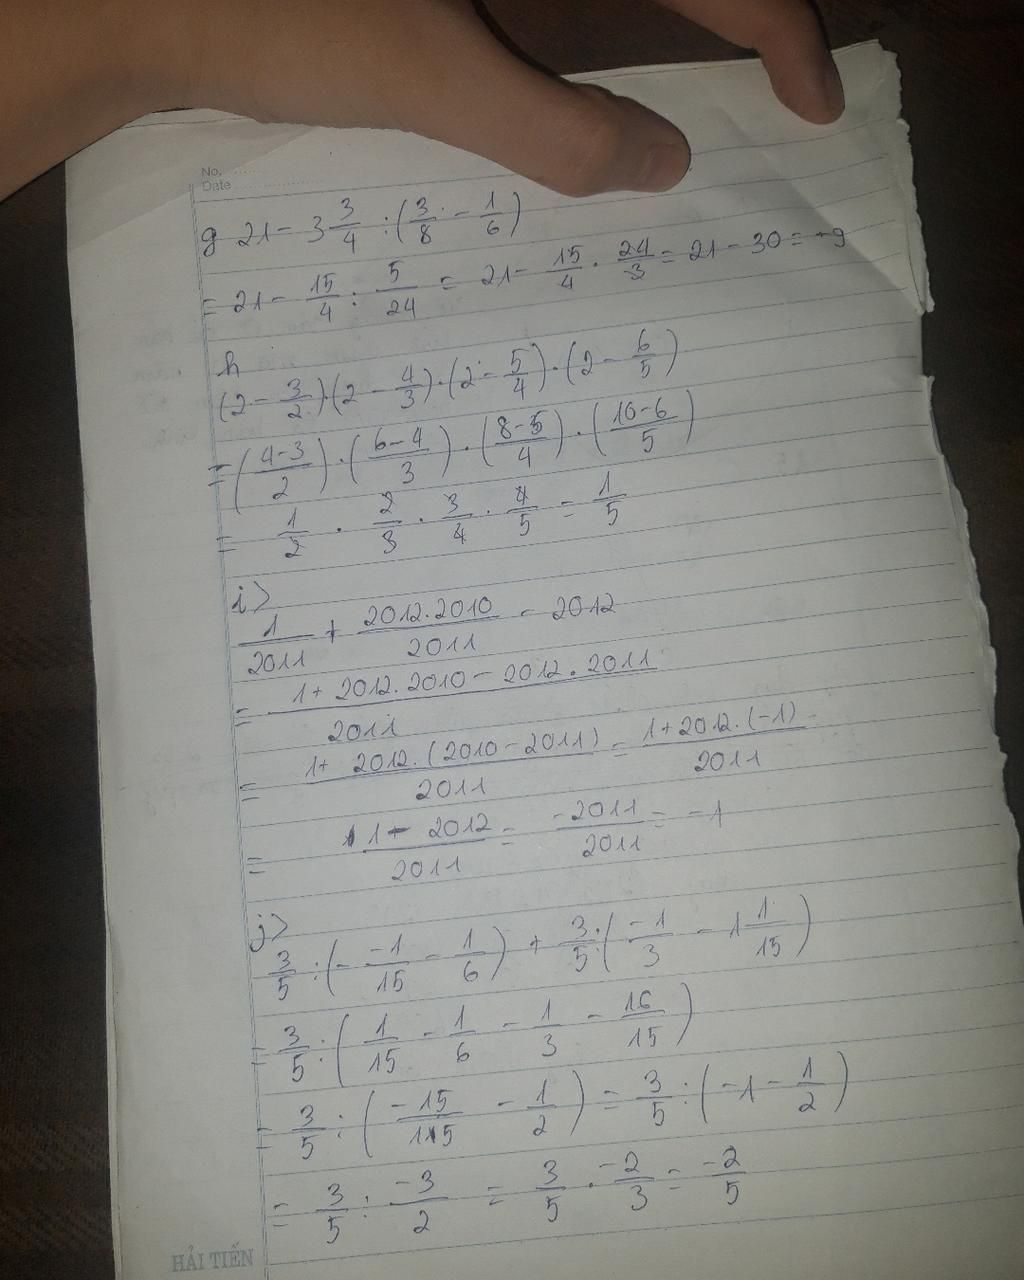 No.
Date
g 21 - 3 3/4 : (3/8 - 1/6)
= 21 - 15/4 : 5/24 = 21 - 15/4 . 24/3 = 21 - 30 = -9
h
(2 - 3/2).(2 - 4/3).(2 - 5/4).(2 - 6/5)
= ((4-3)/2).((6-4)/3).((8-5)/4).((10-6)/5)
= 1/2 . 2/3 . 3/4 . 4/5 = 1/5
i>
1/2011 + 2012.2010/2011 - 2012
= (1 + 2012.2010 - 2012.2011)/2011
= (1 + 2012.(2010 - 2011))/2011 = (1 + 2012.(-1))/2011
= (1 - 2012)/2011 = -2011/2011 = -1
j>
3/5 : (- -1/15 - 1/6) + 3/5 : (-1/3 - 1 1/15)
= 3/5 : (1/15 - 1/6 - 1/3 - 16/15)
= 3/5 : (-15/15 - 1/2) = 3/5 : (-1 - 1/2)
= 3/5 : -3/2 = 3/5 . -2/3 = -2/5
HẢI TIẾN